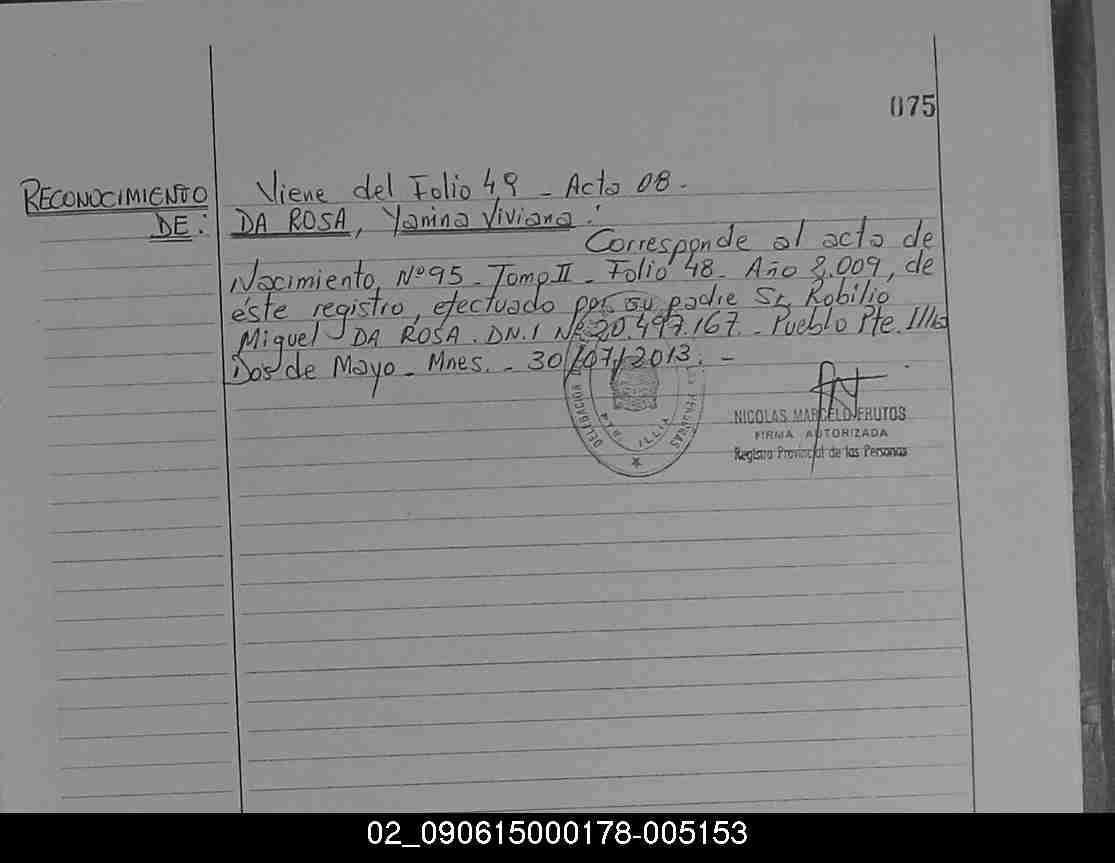 075
RECONOCIMIENTO
DE:
Viene del Folio 49 - Acta 08.
DA ROSA, Yanina Viviana:
Corresponde al acta de
Nacimiento, Nº95 - Tomo II - Folio 48 - Año 2.009, de
éste registro, efectuado por su padre Sr. Robilio
Miguel DA ROSA. DN.I Nº 20.497.167. - Pueblo Pte. Illia
Dos de Mayo - Mnes. - 30/07/2013. -
DELEGACION
PTE. ILLIA
PERSONAS
NICOLAS MARCELO FRUTOS
FIRMA AUTORIZADA
Registro Provincial de las Personas
02_090615000178-005153